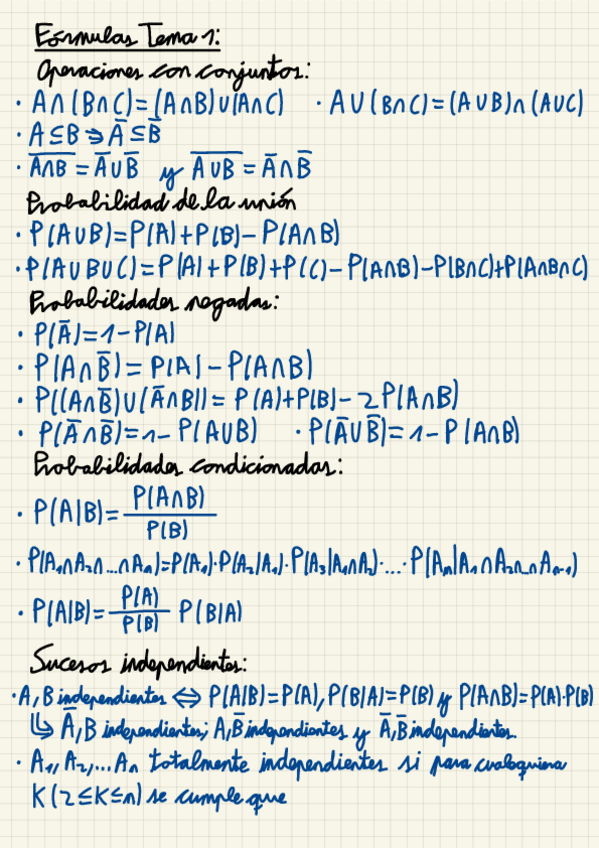 Fórmulas Tema 1:
Operaciones con conjuntos:
· A∩(B∩C)=(A∩B)∪(A∩C) · A∪(B∩C)=(A∪B)∩(A∪C)
· A⊆B ⇒ A̅⊆B̅
· A̅∩̅B̅ = A̅∪B̅ y A̅∪̅B̅ = A̅∩B̅
Probabilidad de la unión
· P(A∪B)=P(A)+P(B)-P(A∩B)
· P(A∪B∪C)=P(A)+P(B)+P(C)-P(A∩B)-P(B∩C)+P(A∩B∩C)
Probabilidades negadas:
· P(A̅)=1-P(A)
· P(A∩B̅)=P(A)-P(A∩B)
· P((A∩B̅)∪(A̅∩B))=P(A)+P(B)-2P(A∩B)
· P(A̅∩B̅)=1-P(A∪B) · P(A̅∪B̅)=1-P(A∩B)
Probabilidades condicionadas:
· P(A|B)=P(A∩B)/P(B)
· P(A₁∩A₂∩...∩Aₙ)=P(A₁)·P(A₂|A₁)·P(A₃|A₁∩A₂)·...·P(Aₙ|A₁∩A₂∩...∩Aₙ₋₁)
· P(A|B)=P(A)/P(B) P(B|A)
Sucesos independientes:
· A,B independientes ⇔ P(A|B)=P(A), P(B|A)=P(B) y P(A∩B)=P(A)·P(B)
↳ A̅,B independientes; A,B̅ independientes y A̅,B̅ independientes.
· A₁, A₂,...Aₙ totalmente independientes si para cualquiera
K(2≤K≤n) se cumple que